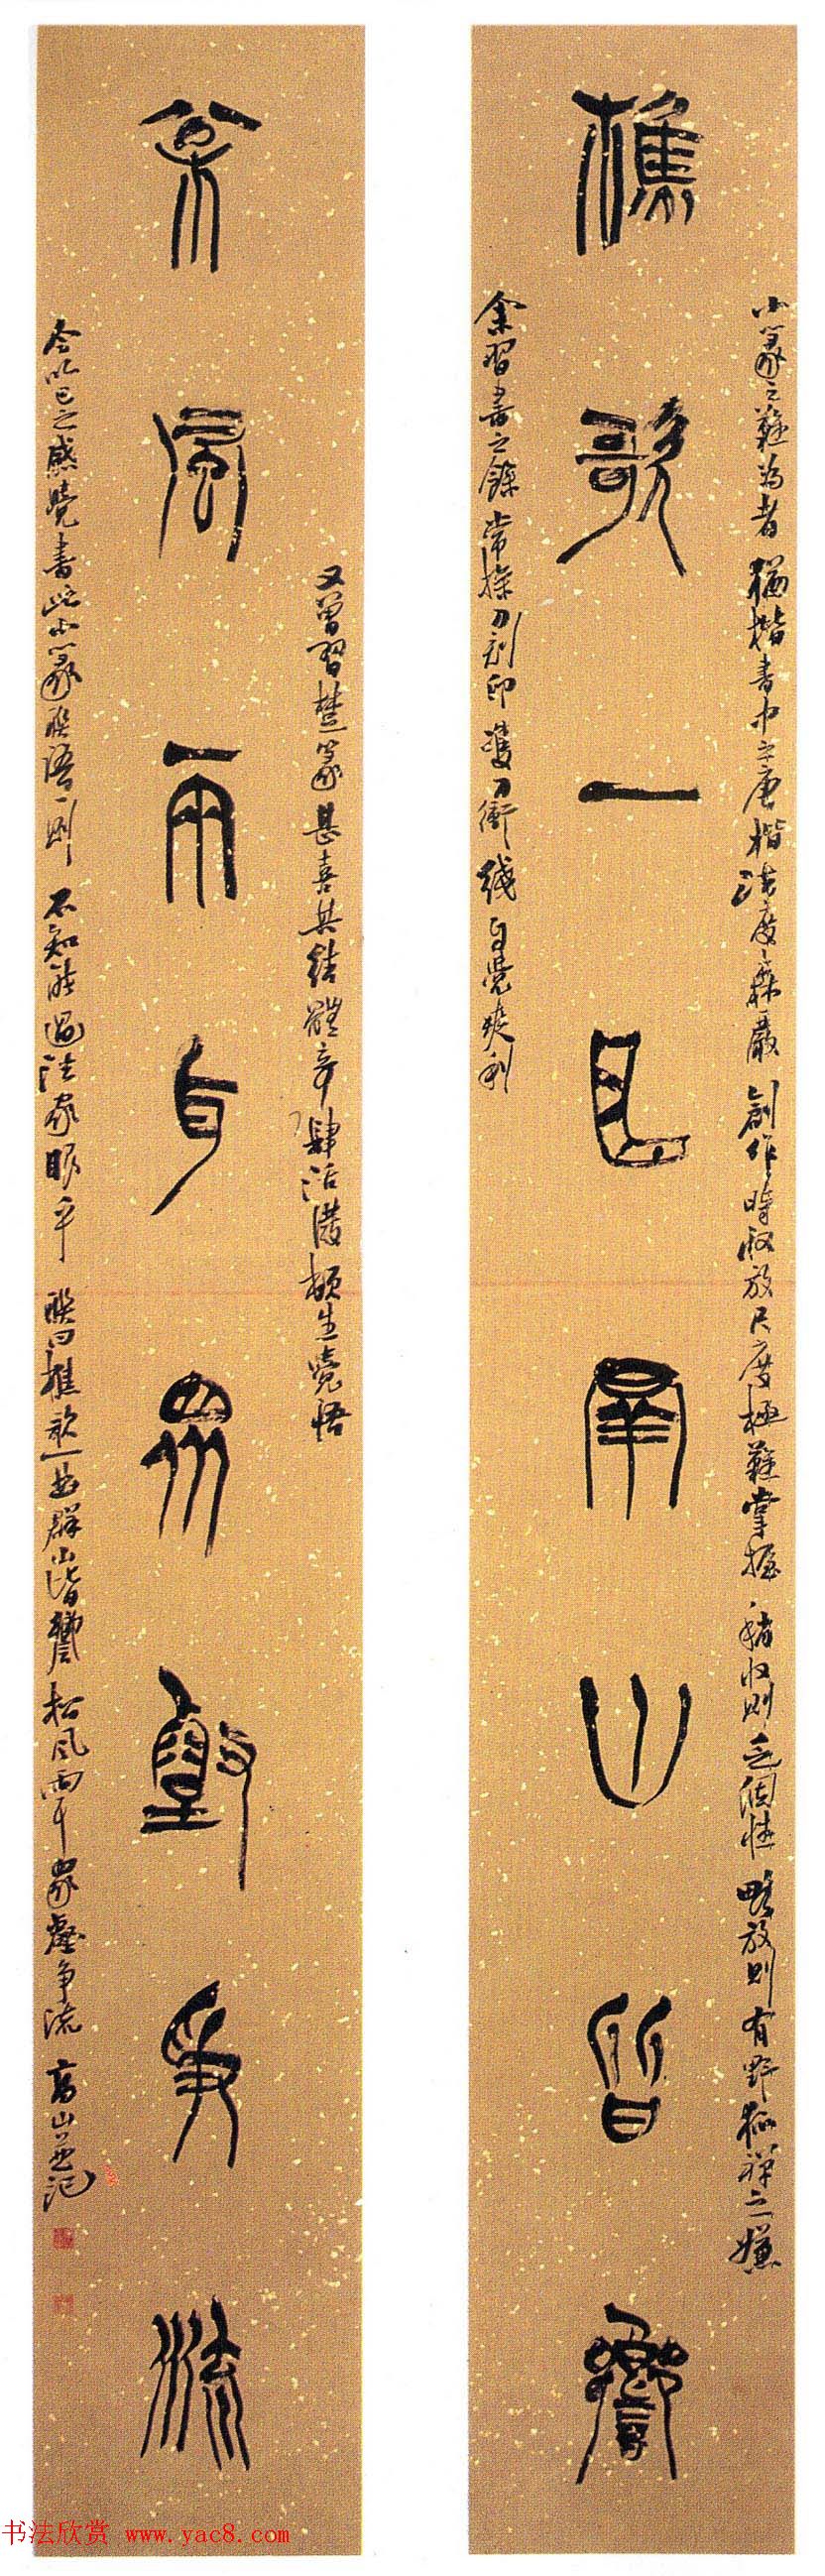 樵歌一曲群山皆響
小篆之難為者猶楷書中之唐楷法度森嚴創作時收放尺度極難掌握稍收則乏個性略放則有野狐禪之嫌
余習書之餘常操刀刻印雙刀衝綫自覺爽利
松風兩耳眾壑爭流
又曾習楚篆甚喜其結體奇肆活潑頓生覺悟
今以己之感覺書此小篆聯語一則不知能過法家眼乎聯曰樵歌一曲群山皆響松風兩耳眾壑爭流高山並記
书法欣赏 www.yac8.com